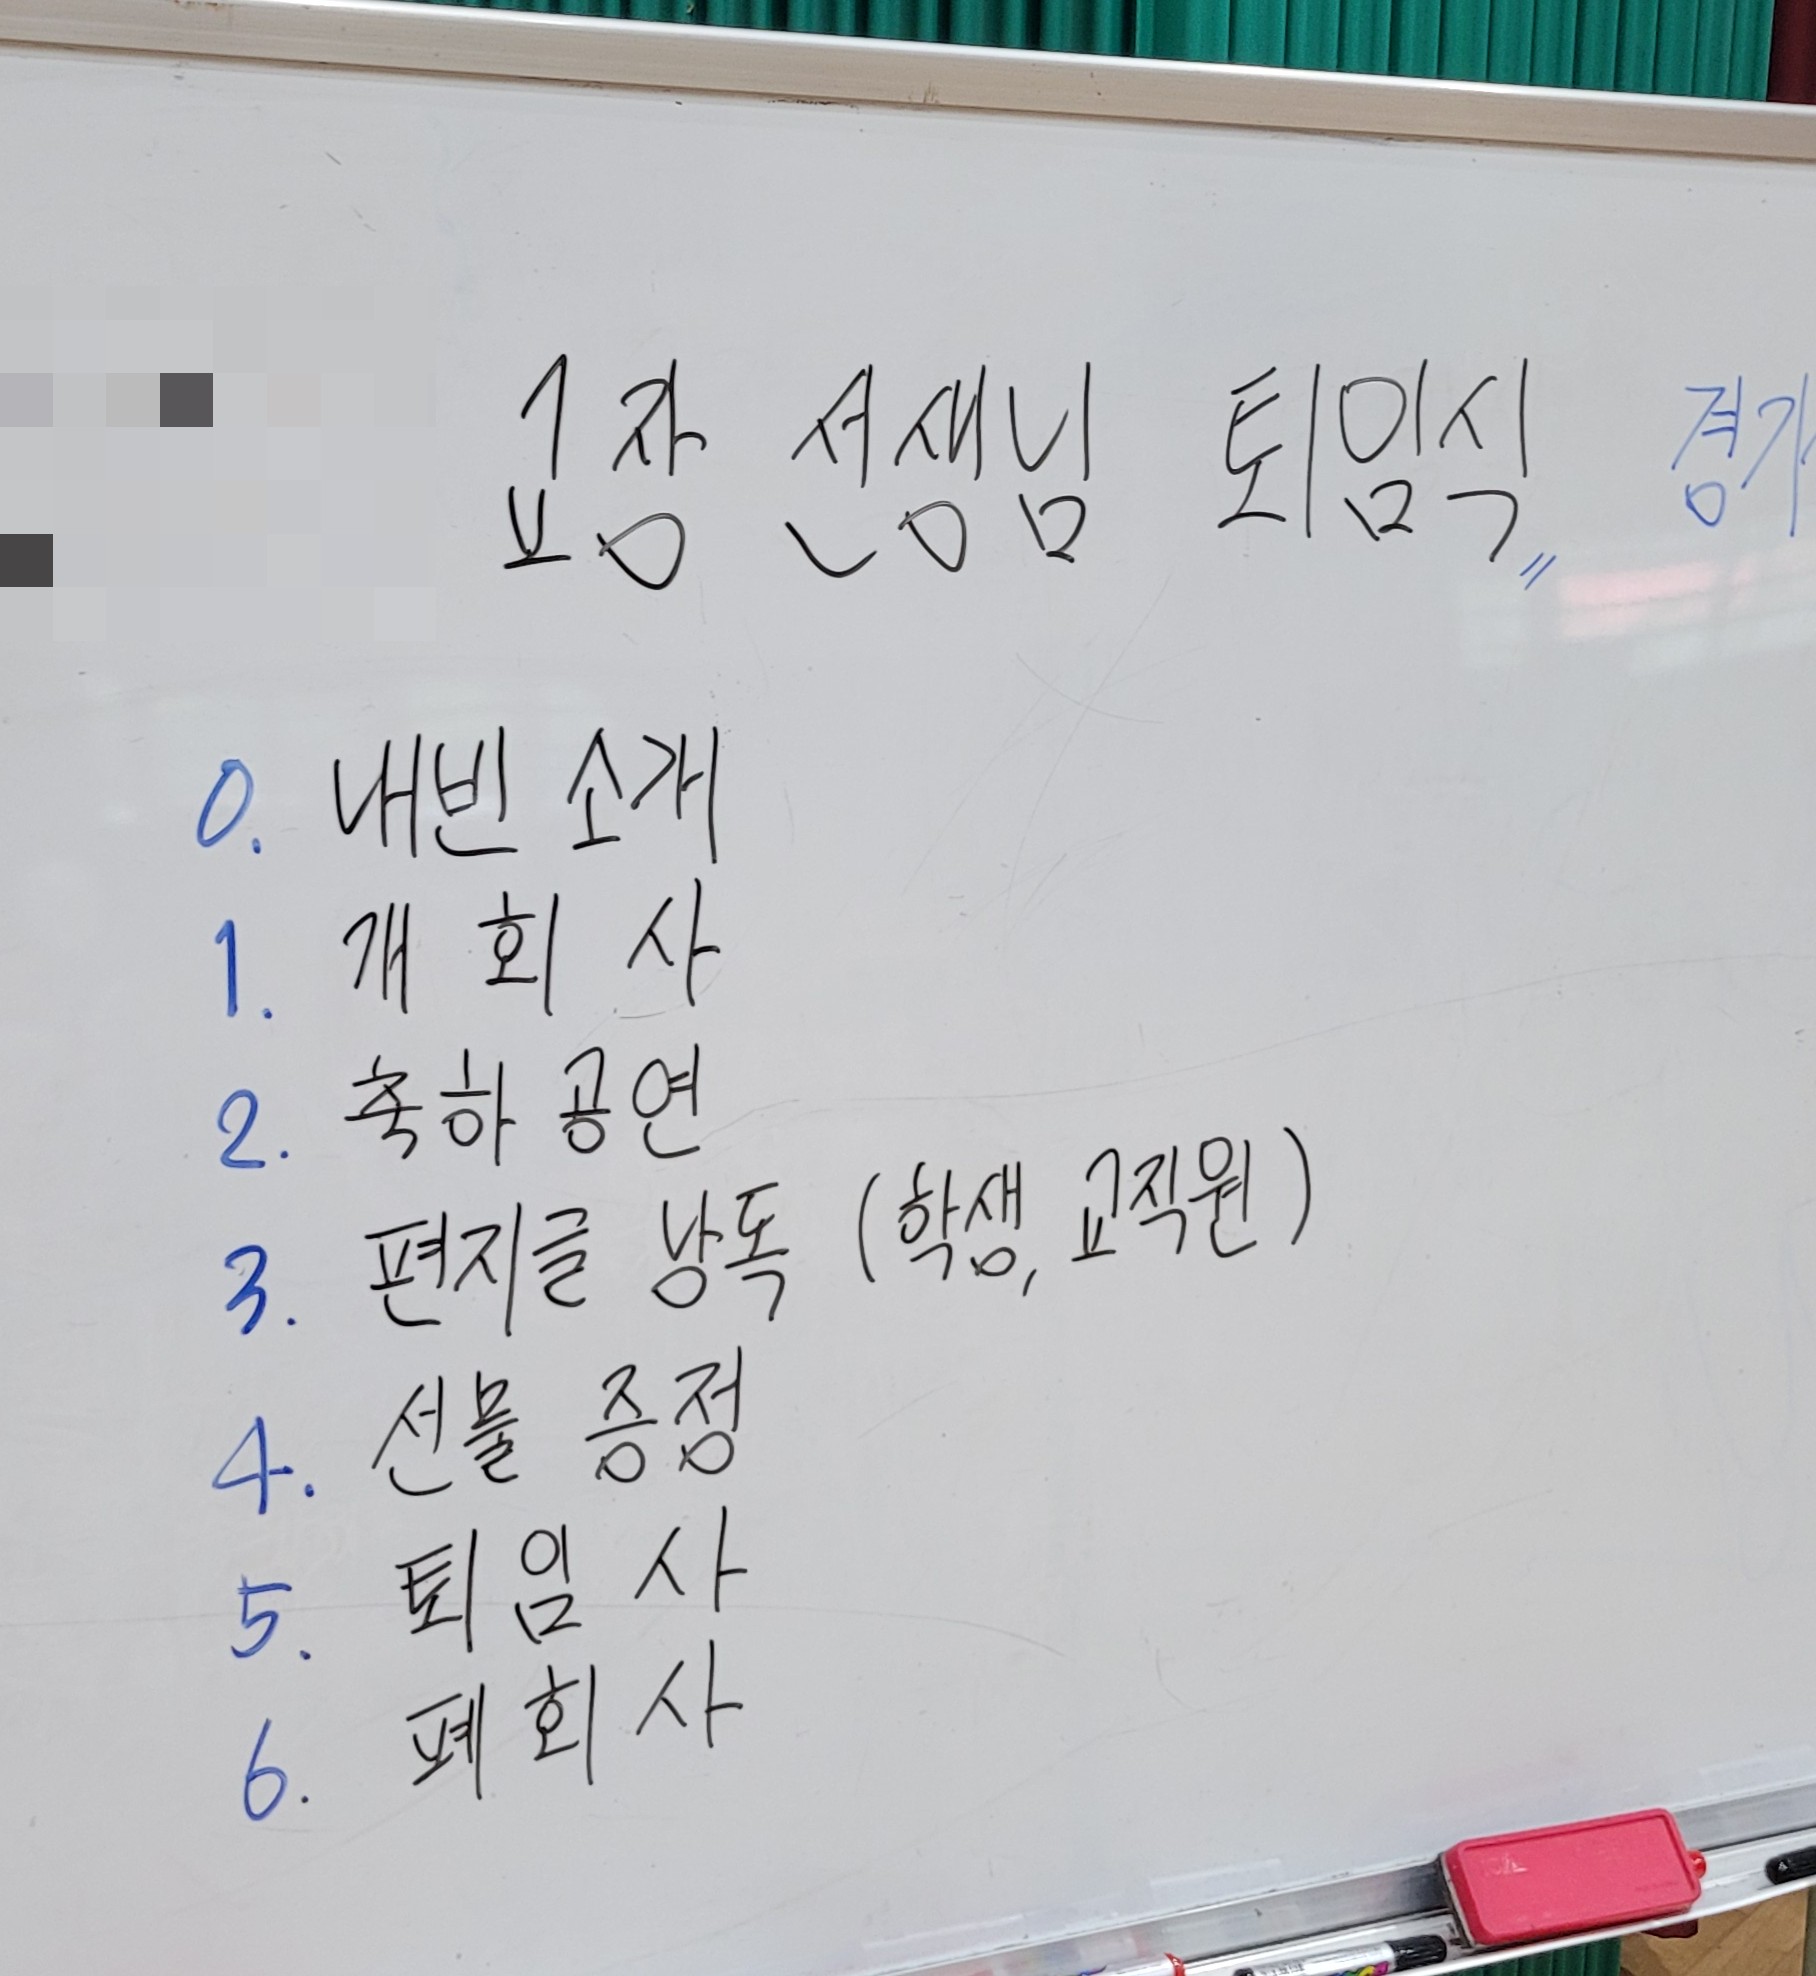 교장 선생님 퇴임식〃 경기
0. 내빈 소개
1. 개 회 사
2. 축하 공연
3. 편지글 낭독 (학생, 교직원)
4. 선물 증정
5. 퇴 임 사
6. 폐 회 사